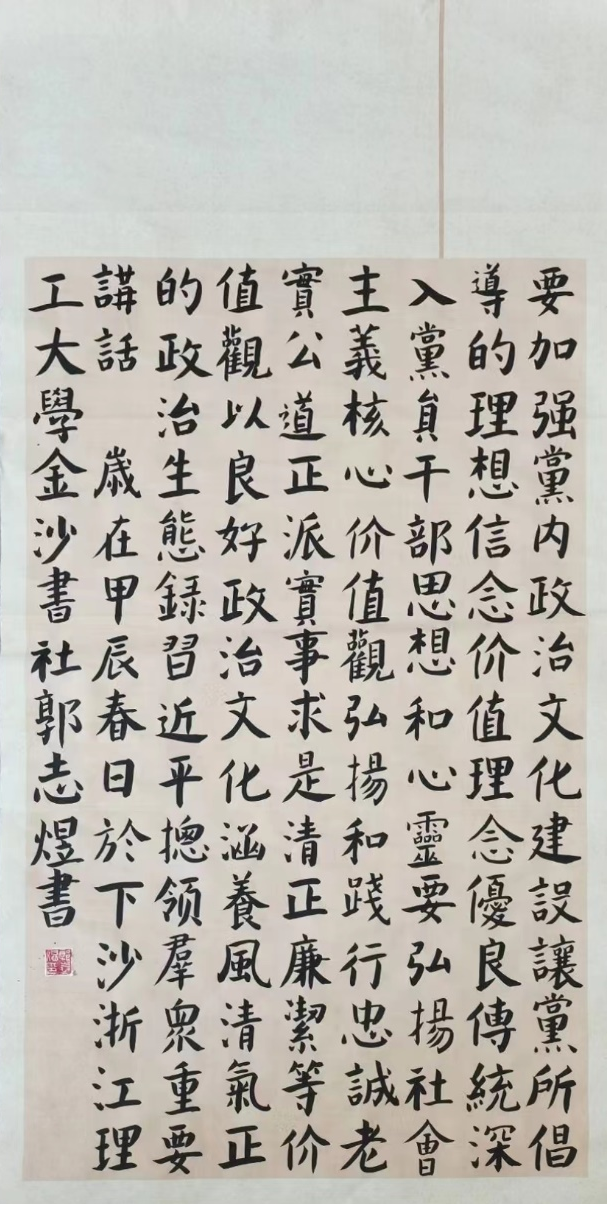 要加强黨内政治文化建設讓黨所倡
導的理想信念价值理念優良傳統深
入黨員干部思想和心靈要弘揚社會
主義核心价值觀弘揚和踐行忠誠老
實公道正派實事求是清正廉潔等价
值觀以良好政治文化涵養風清氣正
的政治生態録習近平摠領羣衆重要
講話 歲在甲辰春日於下沙浙江理
工大學金沙書社郭志煜書